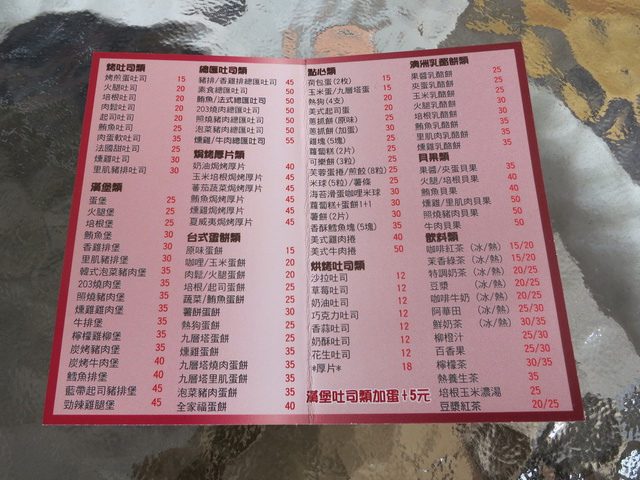 烤吐司類
烤煎蛋吐司 15
火腿吐司 20
培根吐司 20
肉鬆吐司 20
起司吐司 20
鮪魚吐司 25
肉蛋軟吐司 35
法國甜吐司 25
燻雞吐司 30
里肌豬排吐司 35
漢堡類
蛋堡 25
火腿堡 25
培根堡 25
鮪魚堡 30
香雞排堡 30
里肌豬排堡 30
韓式泡菜豬肉堡 35
203燒肉堡 35
照燒豬肉堡 35
燻雞雞肉堡 35
牛排堡 35
檸檬雞柳堡 35
炭烤豬肉堡 40
炭烤牛肉堡 40
鱈魚排堡 40
藍帶起司豬排堡 45
勁辣雞腿堡 45
總匯吐司類
豬排/香雞排總匯吐司 45
素食總匯吐司 50
鮪魚/法式總匯吐司 50
203燒肉總匯吐司 50
照燒豬肉總匯吐司 50
泡菜豬肉總匯吐司 50
燻雞/牛肉總匯吐司 55
焗烤厚片類
奶油焗烤厚片 40
玉米培根焗烤厚片 45
蕃茄蔬菜焗烤厚片 45
鮪魚焗烤厚片 45
燻雞焗烤厚片 45
夏威夷焗烤厚片 45
台式蛋餅類
原味蛋餅 15
咖哩/玉米蛋餅 20
肉鬆/火腿蛋餅 20
培根/起司蛋餅 25
蔬菜/鮪魚蛋餅 25
薯餅蛋餅 30
熱狗蛋餅 25
九層塔蛋餅 25
燻雞蛋餅 35
九層塔燒肉蛋餅 35
九層塔里肌蛋餅 35
泡菜豬肉蛋餅 35
全家福蛋餅 40
點心類
荷包蛋(2枚) 15
玉米蛋/九層塔蛋 25
熱狗(4支) 20
美式起司蛋 20
蔥抓餅(原味) 25
蔥抓餅(加蛋) 30
雞塊(5塊) 25
蘿蔔糕(2片) 25
可樂餅(3粒) 25
芙蓉蛋捲/煎餃(8粒) 25
米球(5粒)/薯條 25
海苔滑蛋咖哩米球 30
蘿蔔糕+蛋餅1+1 30
薯餅(2片) 30
香酥鱈魚塊(5塊) 35
美式雞肉捲 40
美式牛肉捲 50
烘烤吐司類
沙拉吐司 12
草莓吐司 12
奶油吐司 12
巧克力吐司 12
香蒜吐司 12
奶酥吐司 12
花生吐司 12
*厚片* 18
漢堡吐司類加蛋+5元
澳洲乳酪餅類
果醬乳酪餅 25
夾蛋乳酪餅 25
玉米乳酪餅 25
火腿乳酪餅 30
培根乳酪餅 30
鮪魚乳酪餅 30
里肌肉乳酪餅 50
燻雞乳酪餅 50
貝果類
果醬/夾蛋貝果 35
火腿/培根貝果 40
鮪魚貝果 40
燻雞/里肌肉貝果 50
照燒豬肉貝果 50
牛肉貝果 50
飲料類
咖啡紅茶(冰/熱) 15/20
茉香綠茶(冰/熱) 15/20
特調奶茶(冰/熱) 20/25
豆漿(冰/熱) 20/25
咖啡牛奶(冰/熱) 20/25
阿華田(冰/熱) 25/30
鮮奶茶(冰/熱) 30/35
柳橙汁 25/30
百香果 25/30
檸檬茶 30/35
熱養生茶 35
培根玉米濃湯 25
豆漿紅茶 20/25